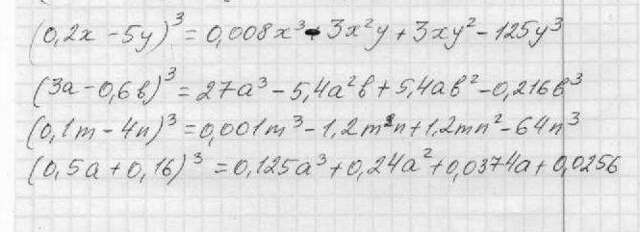 (0,2x - 5y)³ = 0,008x³ - 3x²y + 3xy² - 125y³
(3a - 0,6b)³ = 27a³ - 5,4a²b + 5,4ab² - 0,216b³
(0,1m - 4n)³ = 0,001m³ - 1,2m²n + 1,2mn² - 64n³
(0,5a + 0,16)³ = 0,125a³ + 0,24a² + 0,0374a + 0,0256